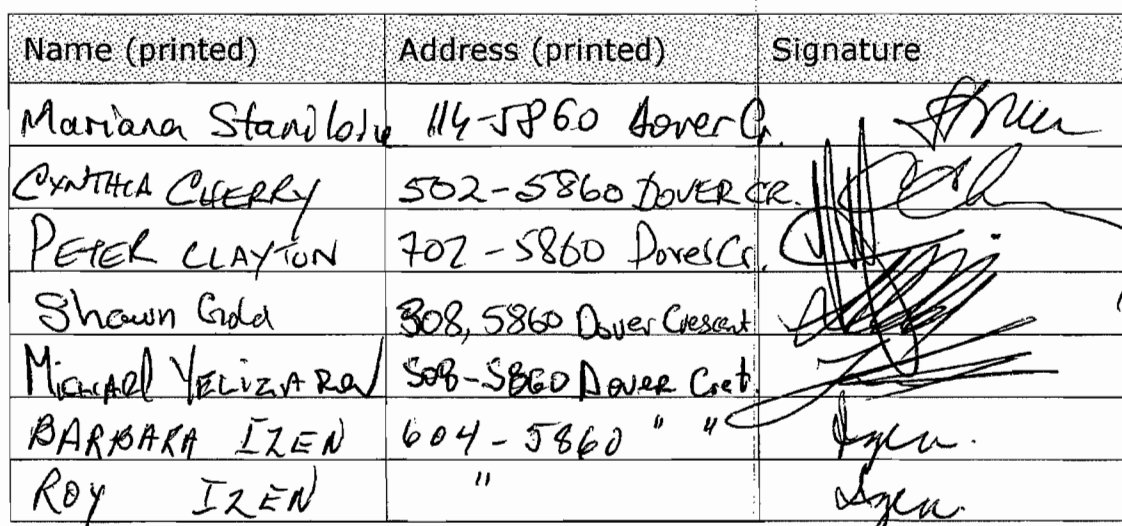 Name (printed) Address (printed) Signature
Mariana Staniloiu 114-5860 Dover Cr.
CYNTHIA CHERRY 502-5860 DOVER CR.
PETER CLAYTON 702-5860 Dover Cr.
Shawn Gold 308, 5860 Dover Crescent
MICHAEL YELIZAROV 508-5860 DOVER Cret.
BARBARA IZEN 604-5860 " " Izen.
ROY IZEN " Izen.